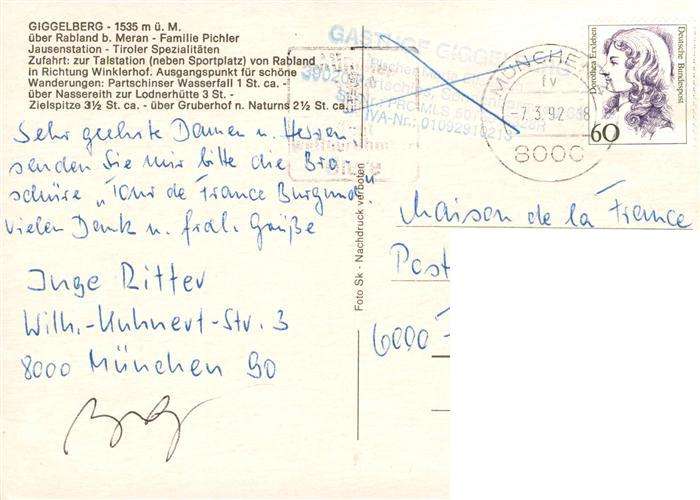 GIGGELBERG - 1535 m ü. M.
über Rabland b. Meran - Familie Pichler
Jausenstation - Tiroler Spezialitäten
Zufahrt: zur Talstation (neben Sportplatz) von Rabland
in Richtung Winklerhof. Ausgangspunkt für schöne
Wanderungen: Partschinser Wasserfall 1 St. ca. -
über Nassereith zur Lodnerhütte 3 St. -
Zielspitze 3½ St. ca. - über Gruberhof n. Naturns 2½ St. ca.
Sehr geehrte Damen u. Herren
senden Sie mir bitte die Bro-
schüre „Tour de France Burgund"
vielen Dank u. frdl. Grüße
Inge Ritter
Wilh.-Kuhnert-Str. 3
8000 München 90
Foto Sk - Nachdruck verboten
GASTHOF
MÜNCHEN
IV
7.3.92
8000
Dorothea Erxleben
Deutsche Bundespost
60
Maison de la France
Post
6000